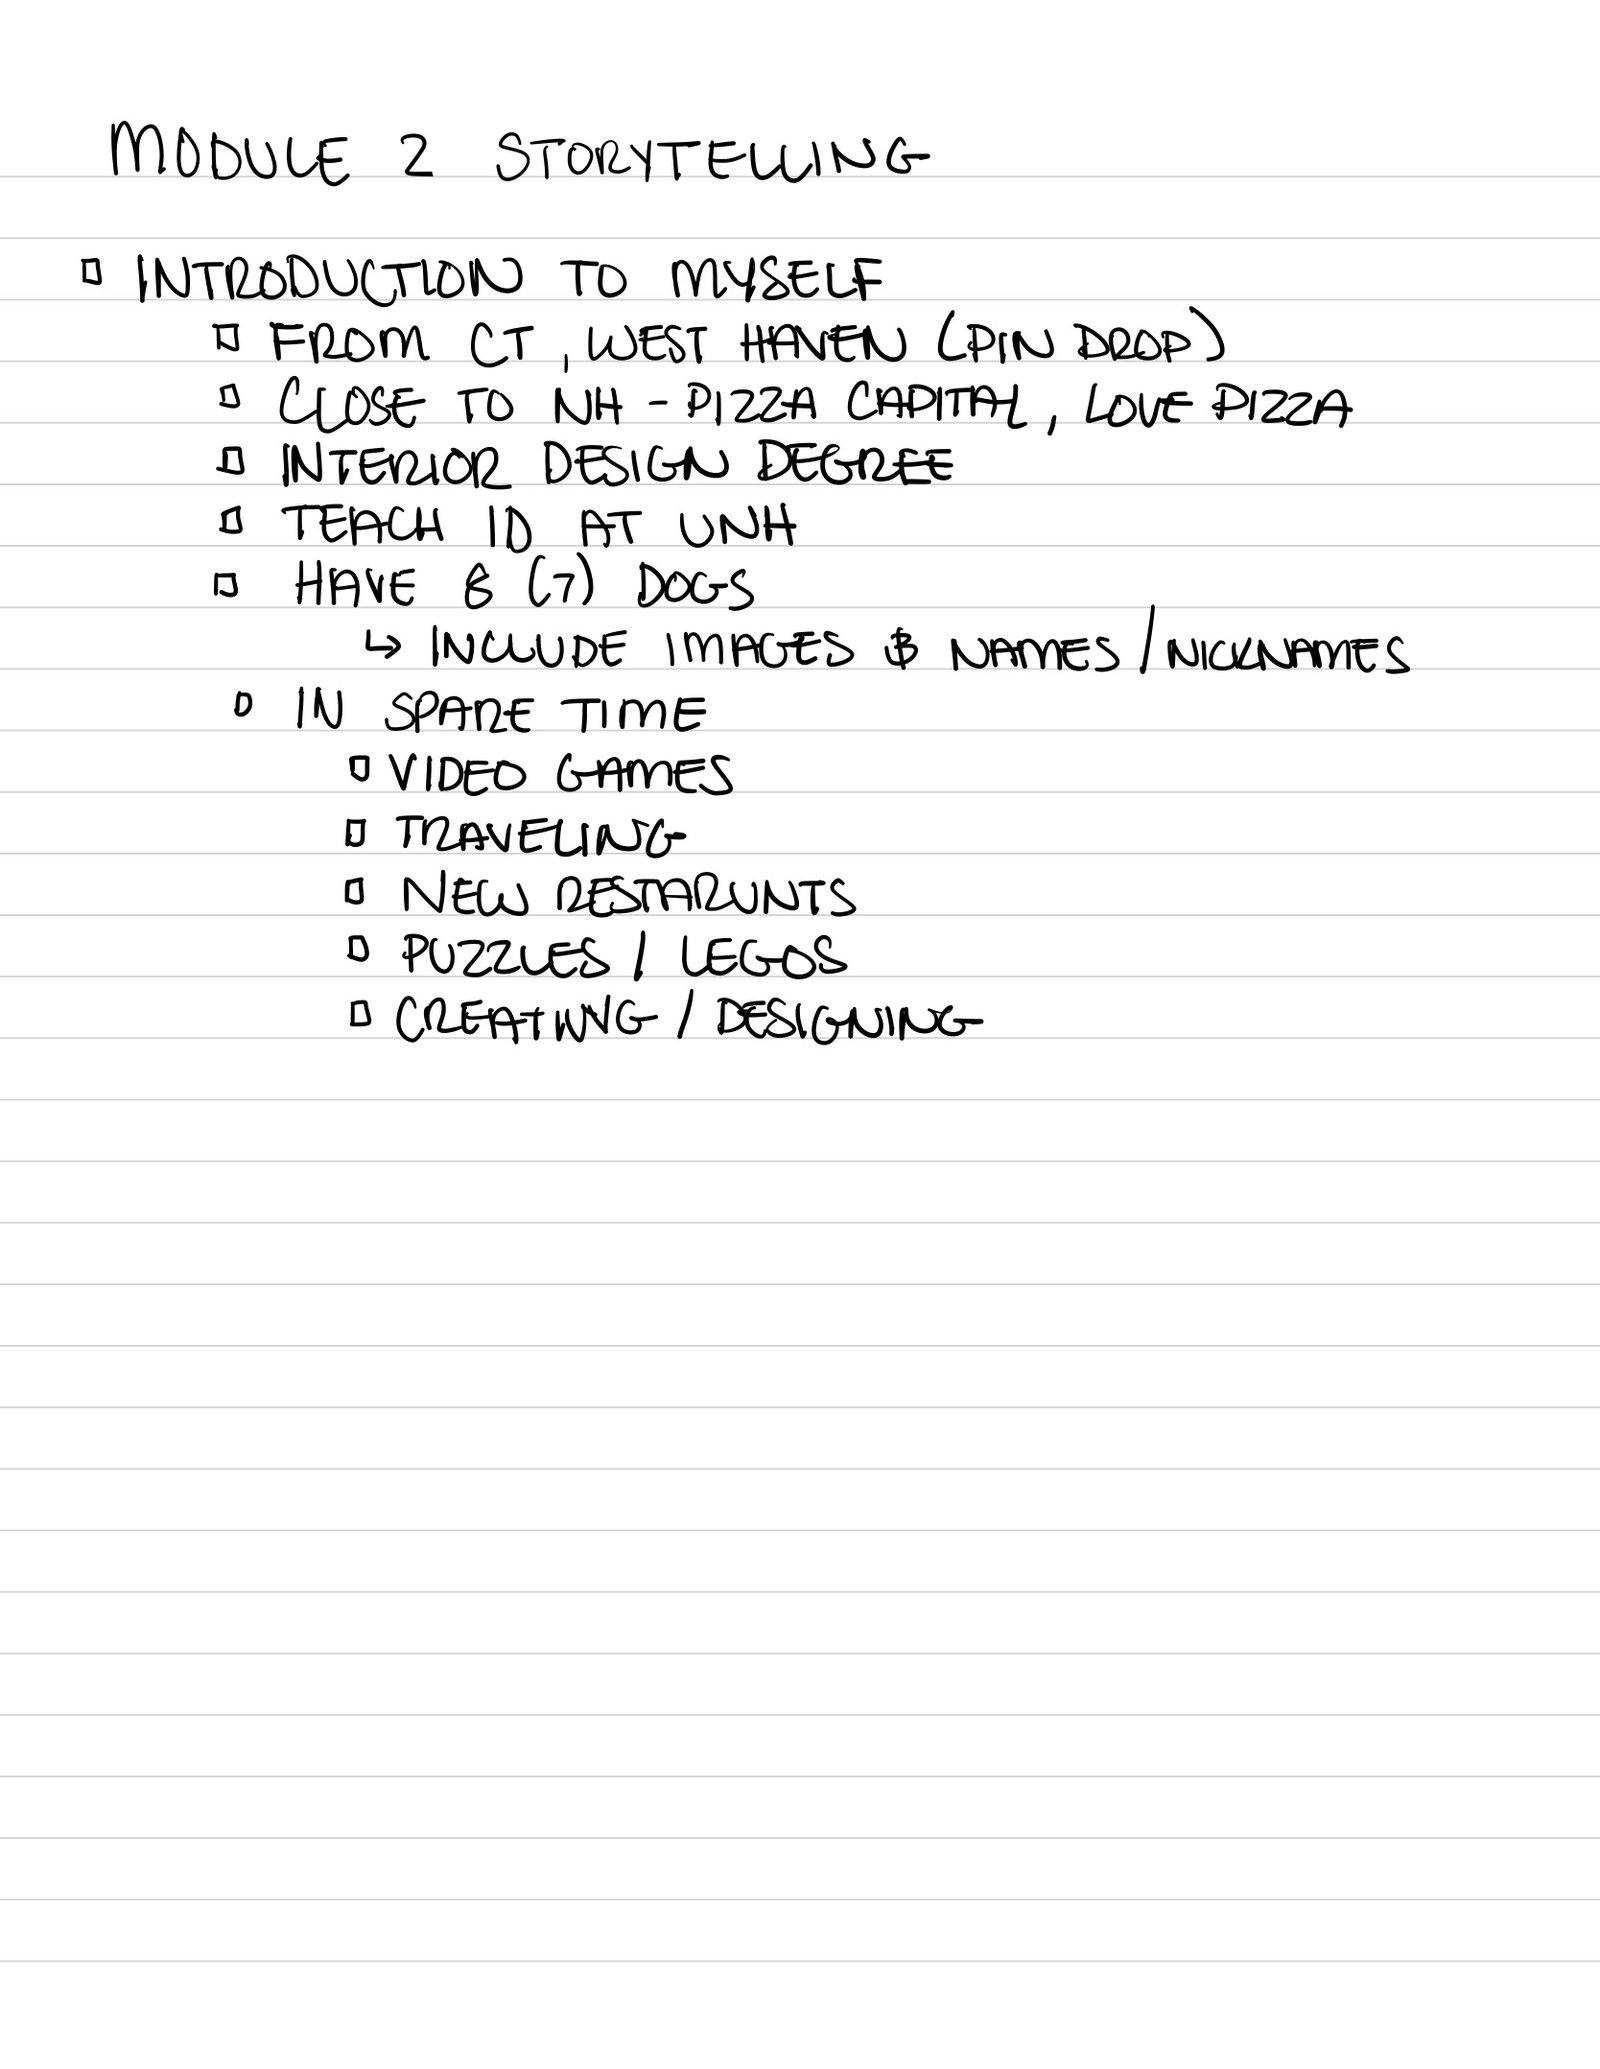 MODULE 2 STORYTELLING
INTRODUCTION TO MYSELF
FROM CT, WEST HAVEN (PIN DROP)
CLOSE TO NH - PIZZA CAPITAL, LOVE PIZZA
INTERIOR DESIGN DEGREE
TEACH ID AT UNH
HAVE 8 (7) DOGS
↳ INCLUDE IMAGES & NAMES / NICKNAMES
IN SPARE TIME
VIDEO GAMES
TRAVELING
NEW RESTARUNTS
PUZZLES / LEGOS
CREATING / DESIGNING